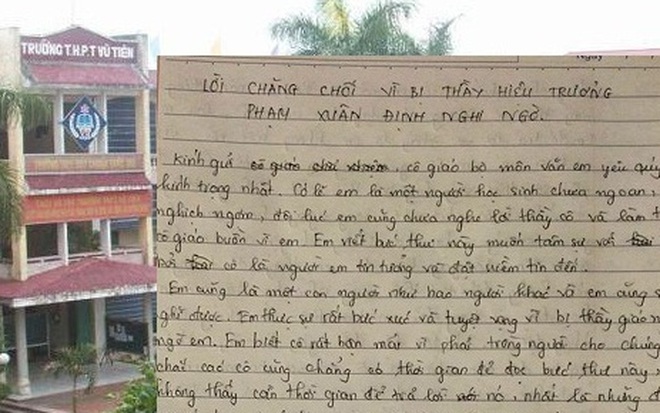 TRƯỜNG T.H.P.T VŨ TIÊN
Ngày
LỜI CHĂNG CHỐI VÌ BỊ THẦY HIỆU TRƯỞNG
PHẠM XUÂN ĐỊNH NGHI NGỜ.
Kính gửi cô giáo bộ môn văn em yêu quý
kính trọng nhất. Có lẽ em là một người học sinh chưa ngoan,
nghịch ngợm, đôi lúc em cũng chưa nghe lời thầy cô và làm
cô giáo buồn vì em. Em viết bức thư này muốn tâm sự với
cô là người em tin tưởng và đặt niềm tin đến.
Em cũng là một con người như bao người khác và em cũng
nghĩ được. Em thực sự rất bức xúc và tuyệt vọng vì bị thầy giáo
ngờ em. Em biết cô rất bận mải vì phải trồng người cho
chắc các cô cũng chẳng có thời gian để đọc bức thư này,
không thấy cần thời gian để trả lời nó, nhất là những